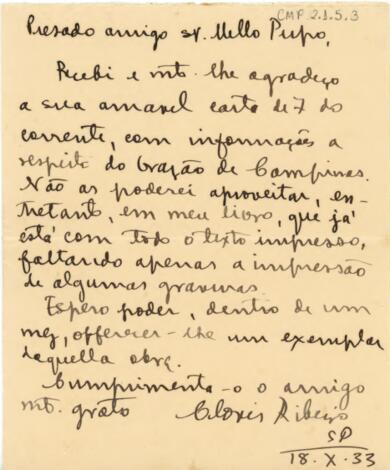 CMP 2.1.5.3
Presado amigo sr. Mello Pupo,
Recebi e mto. lhe agradeço
a sua amavel carta de 7 do
corrente, com informações a
respeito do brazão de Campinas.
Não as poderei aproveitar, en-
tretanto, em meu livro, que já
está com todo o texto impresso,
faltando apenas a impressão
de algumas gravuras.
Espero poder, dentro de um
mez, offerecer-lhe um exemplar
daquella obra.
Cumprimenta-o o amigo
mto. grato Clovis Ribeiro
SP
18.X.33